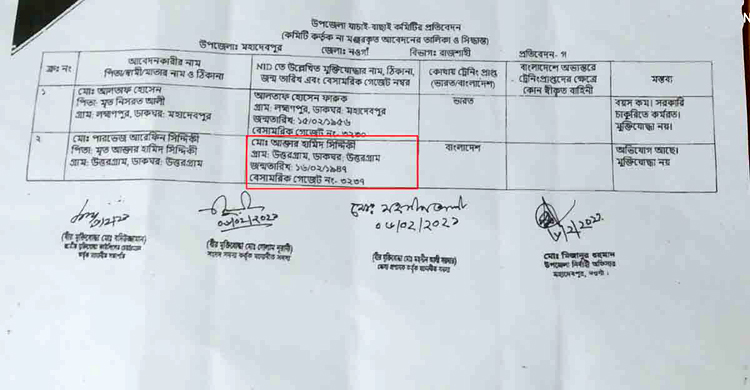 উপজেলা যাচাই-বাছাই কমিটির প্রতিবেদন
(কমিটি কর্তৃক না মঞ্জুরকৃত আবেদনের তালিকা ও সিদ্ধান্ত)
উপজেলাঃ মহাদেবপুর জেলাঃ নওগাঁ বিভাগঃ রাজশাহী প্রতিবেদন- গ
ক্রঃ নং
আবেদনকারীর নাম
পিতা/স্বামী/মাতার নাম ও ঠিকানা
NID তে উল্লেখিত মুক্তিযোদ্ধার নাম, ঠিকানা,
জন্ম তারিখ এবং বেসামরিক গেজেট নম্বর
কোথায় ট্রেনিং প্রাপ্ত
(ভারত/বাংলাদেশ)
বাংলাদেশে অভ্যন্তরে
ট্রেনিংপ্রাপ্তদের ক্ষেত্রে
কোন স্বীকৃত বাহিনী
মন্তব্য
১
মোঃ আলতাফ হোসেন
পিতা: মৃত নিসরত আলী
গ্রাম: লক্ষণপুর, ডাকঘর: মহাদেবপুর
আলতাফ হোসেন ফারুক
গ্রাম: লক্ষণপুর, ডাকঘর: মহাদেবপুর
জন্মতারিখ: ১৫/০২/১৯৫৬
বেসামরিক গেজেট নং- ৩২৩০
ভারত
বয়স কম। সরকারি
চাকুরিতে কর্মরত।
মুক্তিযোদ্ধা নয়।
২
মোঃ পারভেজ আরেফিন সিদ্দিকী
পিতা: মৃত আক্তার হামিদ সিদ্দিকী
গ্রাম: উত্তরগ্রাম, ডাকঘর: উত্তরগ্রাম
মোঃ আক্তার হামিদ সিদ্দিকী
গ্রাম: উত্তরগ্রাম, ডাকঘর: উত্তরগ্রাম
জন্মতারিখ: ১৬/০২/১৯৪৭
বেসামরিক গেজেট নং- ৩২৩৭
বাংলাদেশ
অভিযোগ আছে।
মুক্তিযোদ্ধা নয়
(বীর মুক্তিযোদ্ধা মোঃ
(বীর মুক্তিযোদ্ধা মোঃ গোলাম
(বীর মুক্তিযোদ্ধা মোঃ
মোঃ মিজানুর রহমান
উপজেলা নির্বাহী অফিসার
মহাদেবপুর, নওগাঁ।